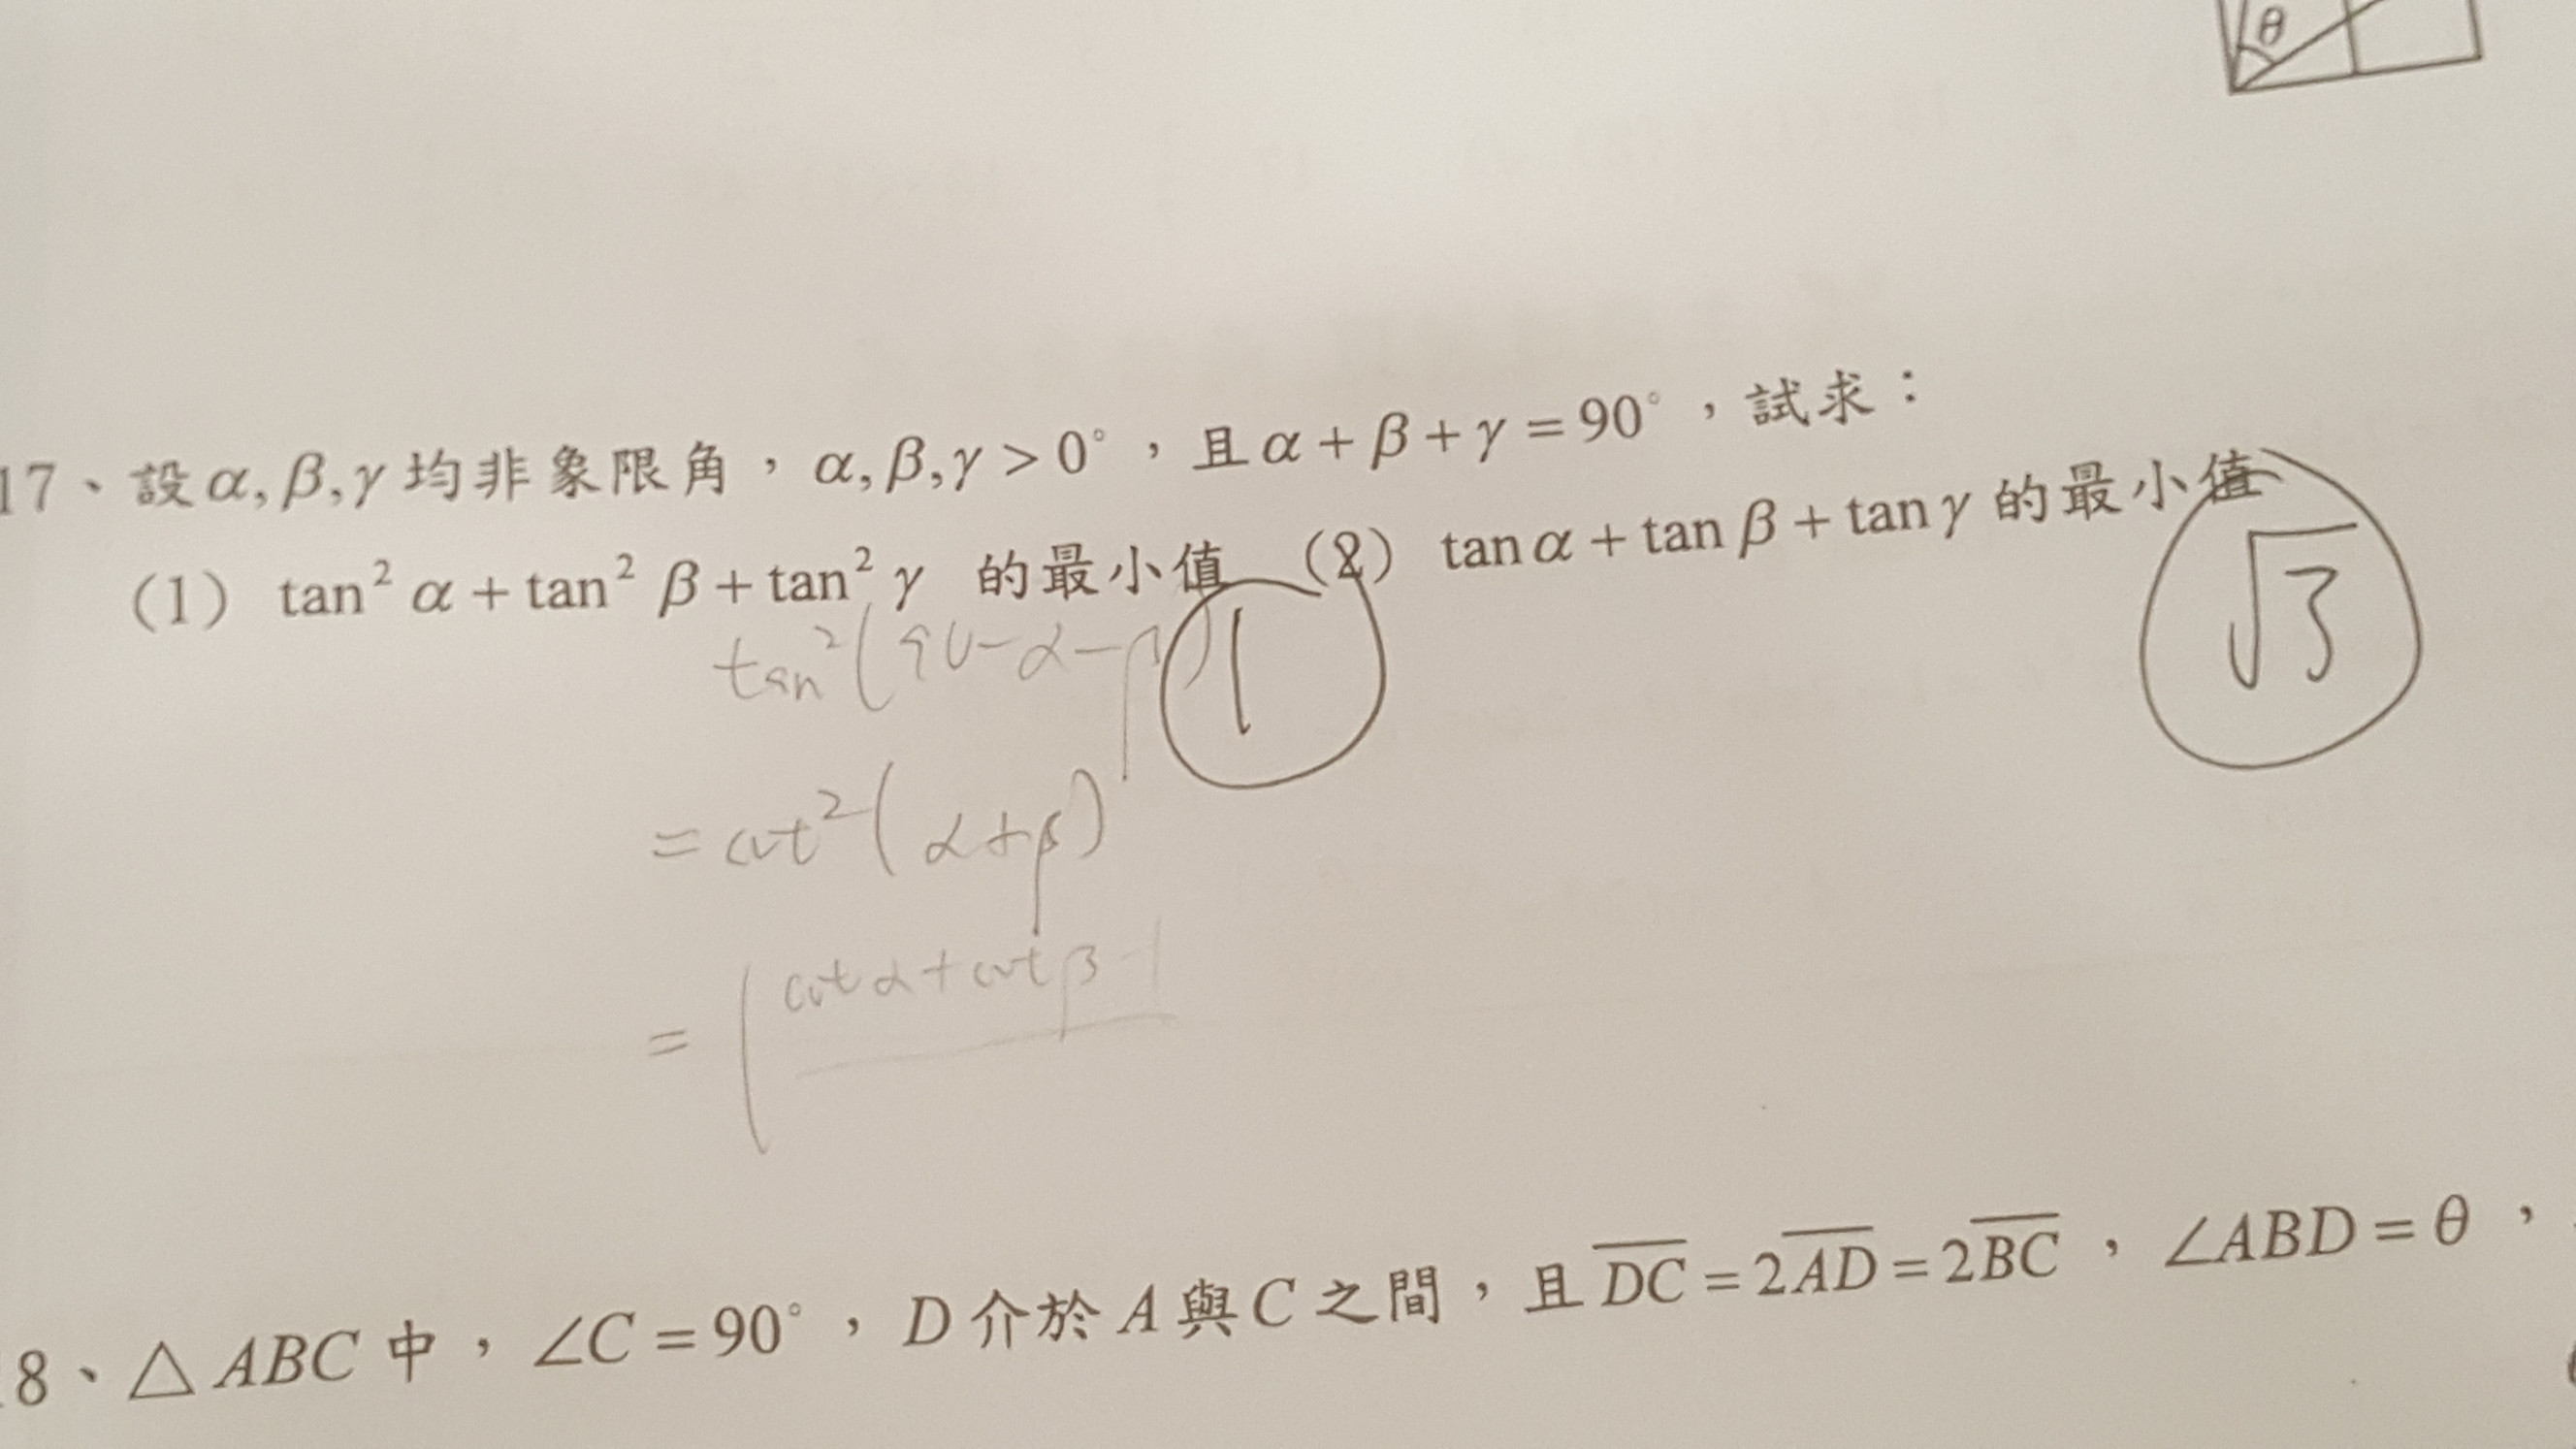 θ
17、設α,β,γ均非象限角，α,β,γ>0°，且α+β+γ=90°，試求：
(1) tan²α+tan²β+tan²γ 的最小值 (2) tanα+tanβ+tanγ的最小值
tan²(90-α-β) 1 √3
=cot²(α+β)
=(cotα+cotβ-1
18、△ABC中，∠C=90°，D介於A與C之間，且D̅C̅=2A̅D̅=2B̅C̅，∠ABD=θ，